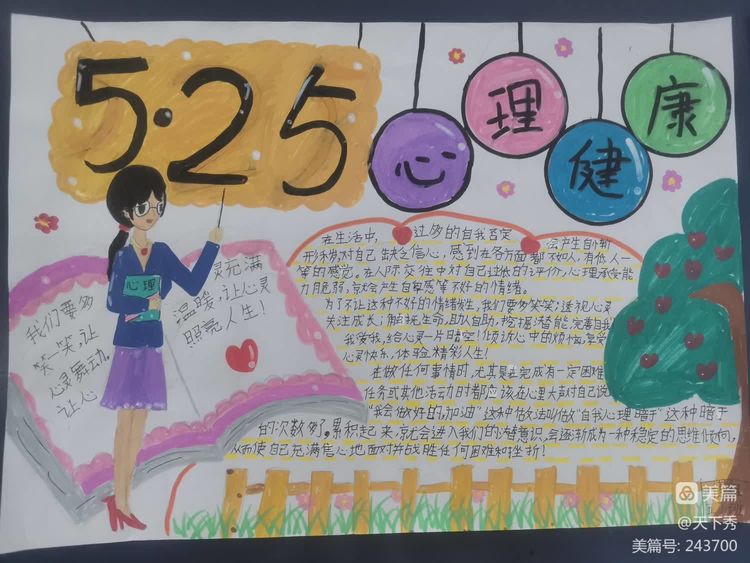 5·25
心理健康
心理
我们要多
笑一笑,让
心灵舞动。
让心
灵充满
温暖,让心灵
照亮人生!
在生活中, 过多的自我否定 会产生自惭
形秽,对自己缺乏信心,感到在各方面都不如人,有低人一
等的感觉。在人际交往中对自己过低的评价,心理承受能
力脆弱,就会产生自卑感等不好的情绪。
为了不让这种不好的情绪发生,我们要多笑笑;透视心灵
关注成长;触抚生命,助人自助,挖掘潜能,完善自我
我爱我,给心灵一片晴空!倾诉心中的烦恼,享受
心灵快乐,体验精彩人生!
在做任何事情时,尤其是在完成有一定困难
任务或其他活动时都应该在心里大声对自己说
"我会做好的,加油"这种做法叫做"自我心理暗示"这种暗示
的次数多了,累积起来,就会进入我们的潜意识,会逐渐成为一种稳定的思维倾向,
从而使自己充满信心地面对并战胜任何困难和挫折!
美篇
@天下秀
美篇号: 243700